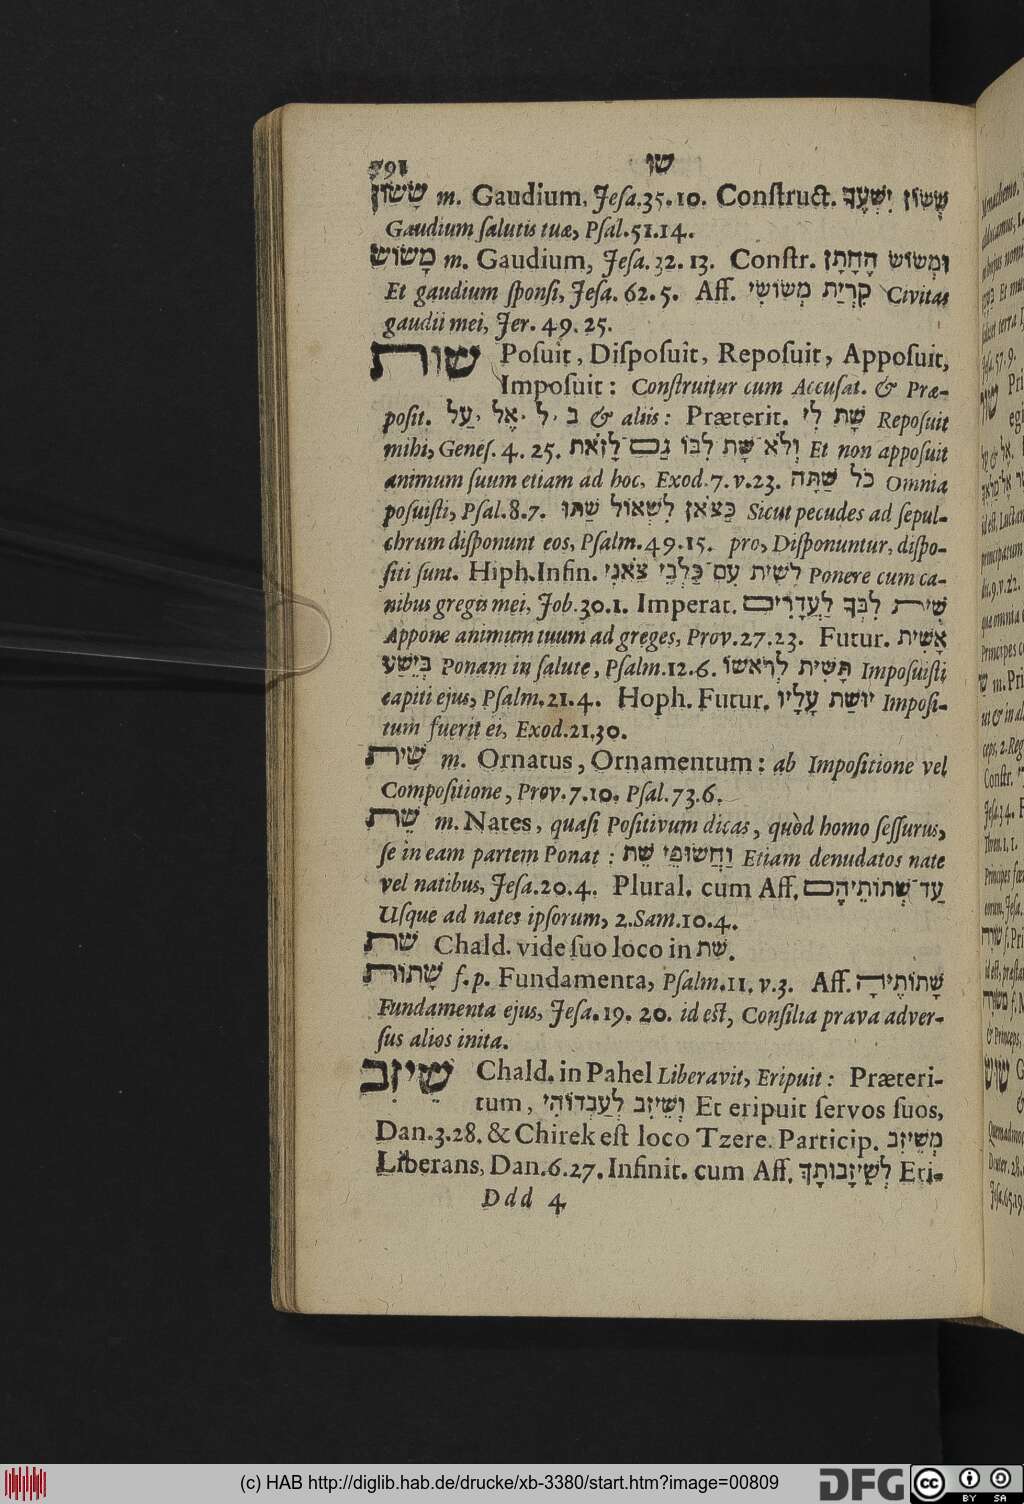 791 שו
שָׂשׂוֹן m. Gaudium, Jeſa.35.10. Conſtruct. שְׂשׂוֹן יִשְׁעֶךָ
Gaudium ſalutis tuæ, Pſal.51.14.
מָשׂוֹשׂ m. Gaudium, Jeſa. 32. 13. Conſtr. וּמְשׂוֹשׂ הֶחָתָן
Et gaudium ſponſi, Jeſa. 62. 5. Aff. קִרְיַת מְשׂוֹשִׂי Civitas
gaudii mei, Jer. 49. 25.
שות Poſuit, Diſpoſuit, Repoſuit, Appoſuit,
Impoſuit: Conſtruitur cum Accuſat. & Præ-
poſit. ב ,ל ,אֶל ,עַל & aliis: Præterit. שָׁת לִי Repoſuit
mihi, Geneſ. 4. 25. וְלֹא־שָׁת לִבּוֹ גַּם־לָזֹאת Et non appoſuit
animum ſuum etiam ad hoc, Exod.7.v.23. כֹּל שַׁתָּה Omnia
poſuiſti, Pſal.8.7. כַּצֹּאן לִשְׁאוֹל שַׁתּוּ Sicut pecudes ad ſepul-
chrum diſponunt eos, Pſalm.49.15. pro, Diſponuntur, diſpo-
ſiti ſunt. Hiph.Infin. לָשִׁית עִם־כַּלְבֵי צֹאנִי Ponere cum ca-
nibus gregis mei, Job.30.1. Imperat. שִׁית לִבְּךָ לַעֲדָרִים
Appone animum tuum ad greges, Prov.27.23. Futur. אָשִׁית
בְּיֵשַׁע Ponam in ſalute, Pſalm.12.6. תָּשִׁית לְרֹאשׁוֹ Impoſuiſti
capiti ejus, Pſalm.21.4. Hoph. Futur. יוּשַׁת עָלָיו Impoſi-
tum fuerit ei, Exod.21.30.
שִׁית m. Ornatus, Ornamentum: ab Impoſitione vel
Compoſitione, Prov.7.10. Pſal.73.6.
שֵׁת m. Nates, quaſi Poſitivum dicas, quòd homo ſeſſurus,
ſe in eam partem Ponat: וַחֲשׂוּפַי שֵׁת Etiam denudatos nate
vel natibus, Jeſa.20.4. Plural. cum Aff. עַד־שְׁתוֹתֵיהֶם
Uſque ad nates ipſorum, 2.Sam.10.4.
שת Chald. vide ſuo loco in שת.
שָׁתוֹת f.p. Fundamenta, Pſalm.11.v.3. Aff. שָׁתוֹתֶיהָ
Fundamenta ejus, Jeſa.19. 20. id eſt, Conſilia prava adver-
ſus alios inita.
שֵׁיזִב Chald. in Pahel Liberavit, Eripuit: Præteri-
tum, וְשֵׁיזִב לְעַבְדוֹהִי Et eripuit ſervos ſuos,
Dan.3.28. & Chirek eſt loco Tzere. Particip. מְשֵׁיזִב
Liberans, Dan.6.27. Infinit. cum Aff. לְשֵׁיזָבוּתָךְ Eri-
Ddd 4
(c) HAB http://diglib.hab.de/drucke/xb-3380/start.htm?image=00809
DFG
cc BY SA